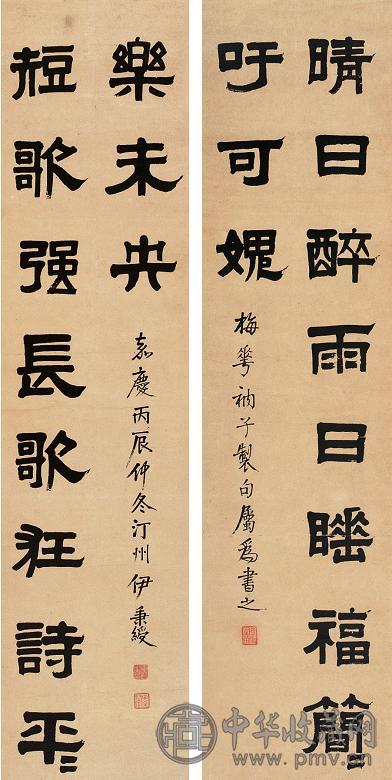 晴日醉雨日睡福簡〻
吁可媿
梅華衲子製句屬爲書之
樂未央
嘉慶丙辰仲冬汀州伊秉綬
短歌强長歌狂詩平〻
中华收藏网
www.pmv.cn